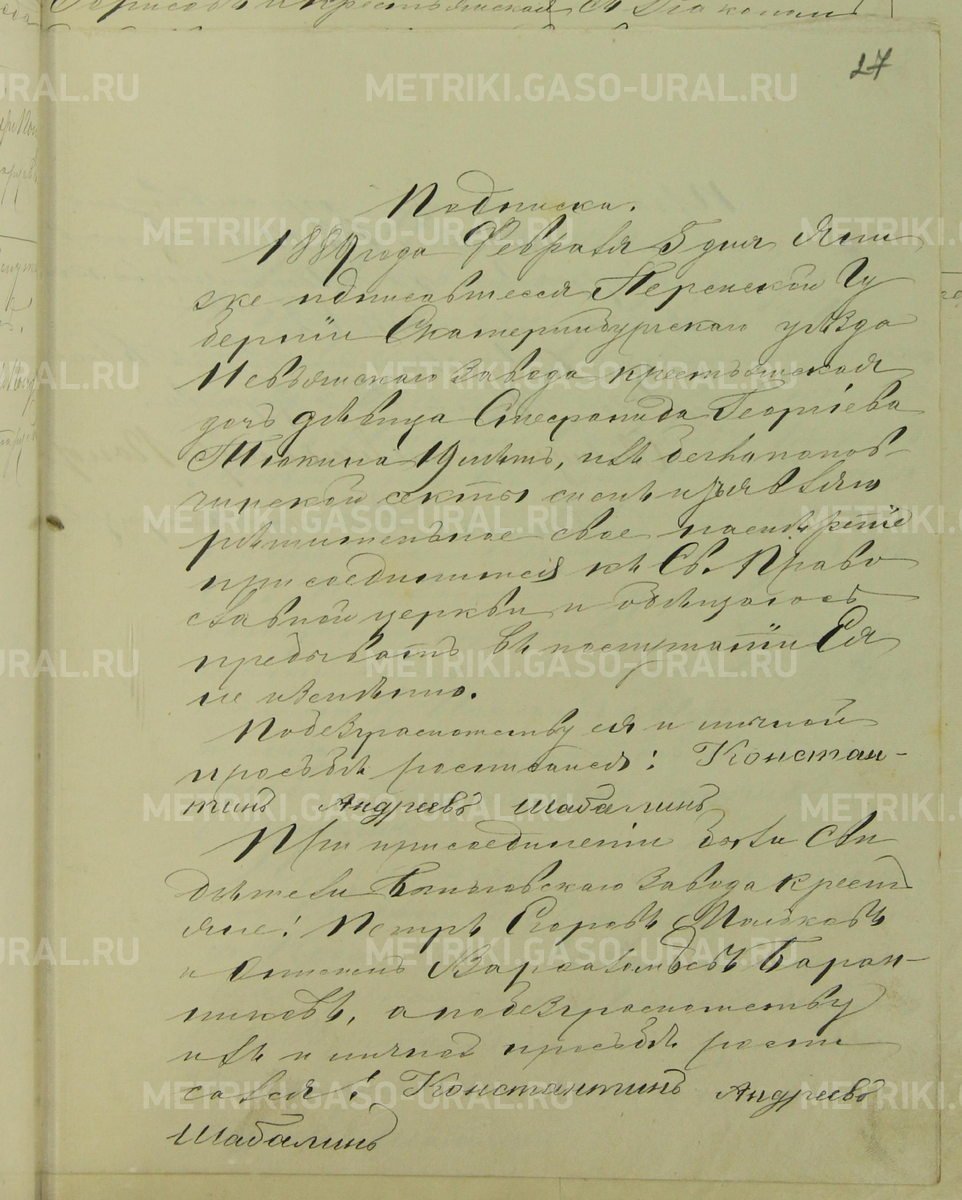 27
Подписка.
1889 года Февраля 5 дня Я ни
же подписавшеся Пермской Гу
берніи Екатеринбургскаго уѣзда
Невьянскаго завода крестьянская
дочь дѣвица Стефанида Георгіева
Тюкина 19 лѣтъ, изъ
секты симъ изъявляю
рѣшительное свое намѣреніе
присоединиться къ Св. Право
славной церкви и обѣщаюсь
пребывать въ послушаніи Ея
неизмѣнно.
По безграмотству ея и личной
просьбѣ росписался: Констан-
тинъ Андреевъ Шабалинъ
При присоединеніи были Сви
дѣтели завода крест
яне: Петръ Егоровъ
и Варфаломѣевъ Баран-
никовъ, а по безграмотству
ихъ и личной просьбѣ роспи
сался: Константинъ Андреевъ
Шабалинъ
METRIKI.GASO-URAL.RU